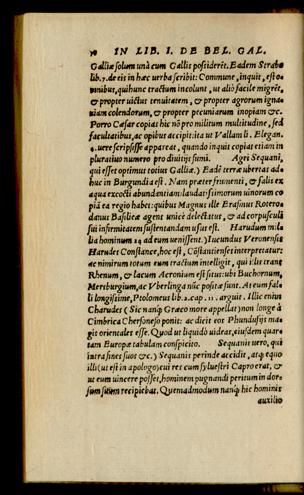 IN LIB. I. DE BEL. GAL.
Galliæ solum unà cum Gallis possiderēt. Eadem Strabo
lib. 7. de eis in hæc uerba scribit: Commune, inquit, est o-
mnibus, qui hunc tractum incolunt, ut aliò facilè migrēt,
& propter uictus tenuitatem, & propter agrorum igna-
uiam colendorum, & propter pecuniarum inopiam &c.
Porro Cæsar copias hic nō pro militum multitudine, sed
facultatibus, ac opibus accipit: ita ut Vallam li. Elegan.
4. uere scripsisse appareat, quando inquit copias etiam in
pluratiuo numero pro diuitijs sumi. Agri Sequani,
qui esset optimus totius Galliæ.) Eadē terræ ubertas ad-
huc in Burgundia est. Nam præter frumenti, & salis ex
aqua excocti abundantiam: laudatissimorum uinorum co
piā ea regio habet: quibus Magnus ille Erasmus Rotero-
damus Basileæ agens unicè delectatus, & ad corpusculi
sui infirmitatem sustentandam usus est. Harudum mi-
lia hominum 24 ad eum uenissent.) Iucundus Veronensis
Harudes Constance, hoc est, Cōstantienses interpretatur:
ac nimirum totum eum tractum intelligit, qui is trans
Rhenum, & lacum Acronium est situs: ubi Buchornum,
Mersburgium, ac Vberlinga nūc positæ sunt. At eum fal-
li longissime, Ptolomeus lib. 2. cap. 11. arguit. Illic enim
Charudes (Sic nanq; Græco more appellat) non longè à
Cimbrica Chersoneso ponit: ac dicit eos Phundusijs ma-
gis orientales esse. Quod ut liquidò uideas, eiusdem quar-
tam Europæ tabulam conspicito. Sequanis uero, qui
intra fines suos &c.) Sequanis perinde accidit, atq; equo
illi (ut est in apologo) cui res cum syluestri Capro erat, &
ut eum uincere posset, hominem pugnandi peritum in dor-
sum suum recipiebat. Quemadmodum nanq; hic hominis
auxilio